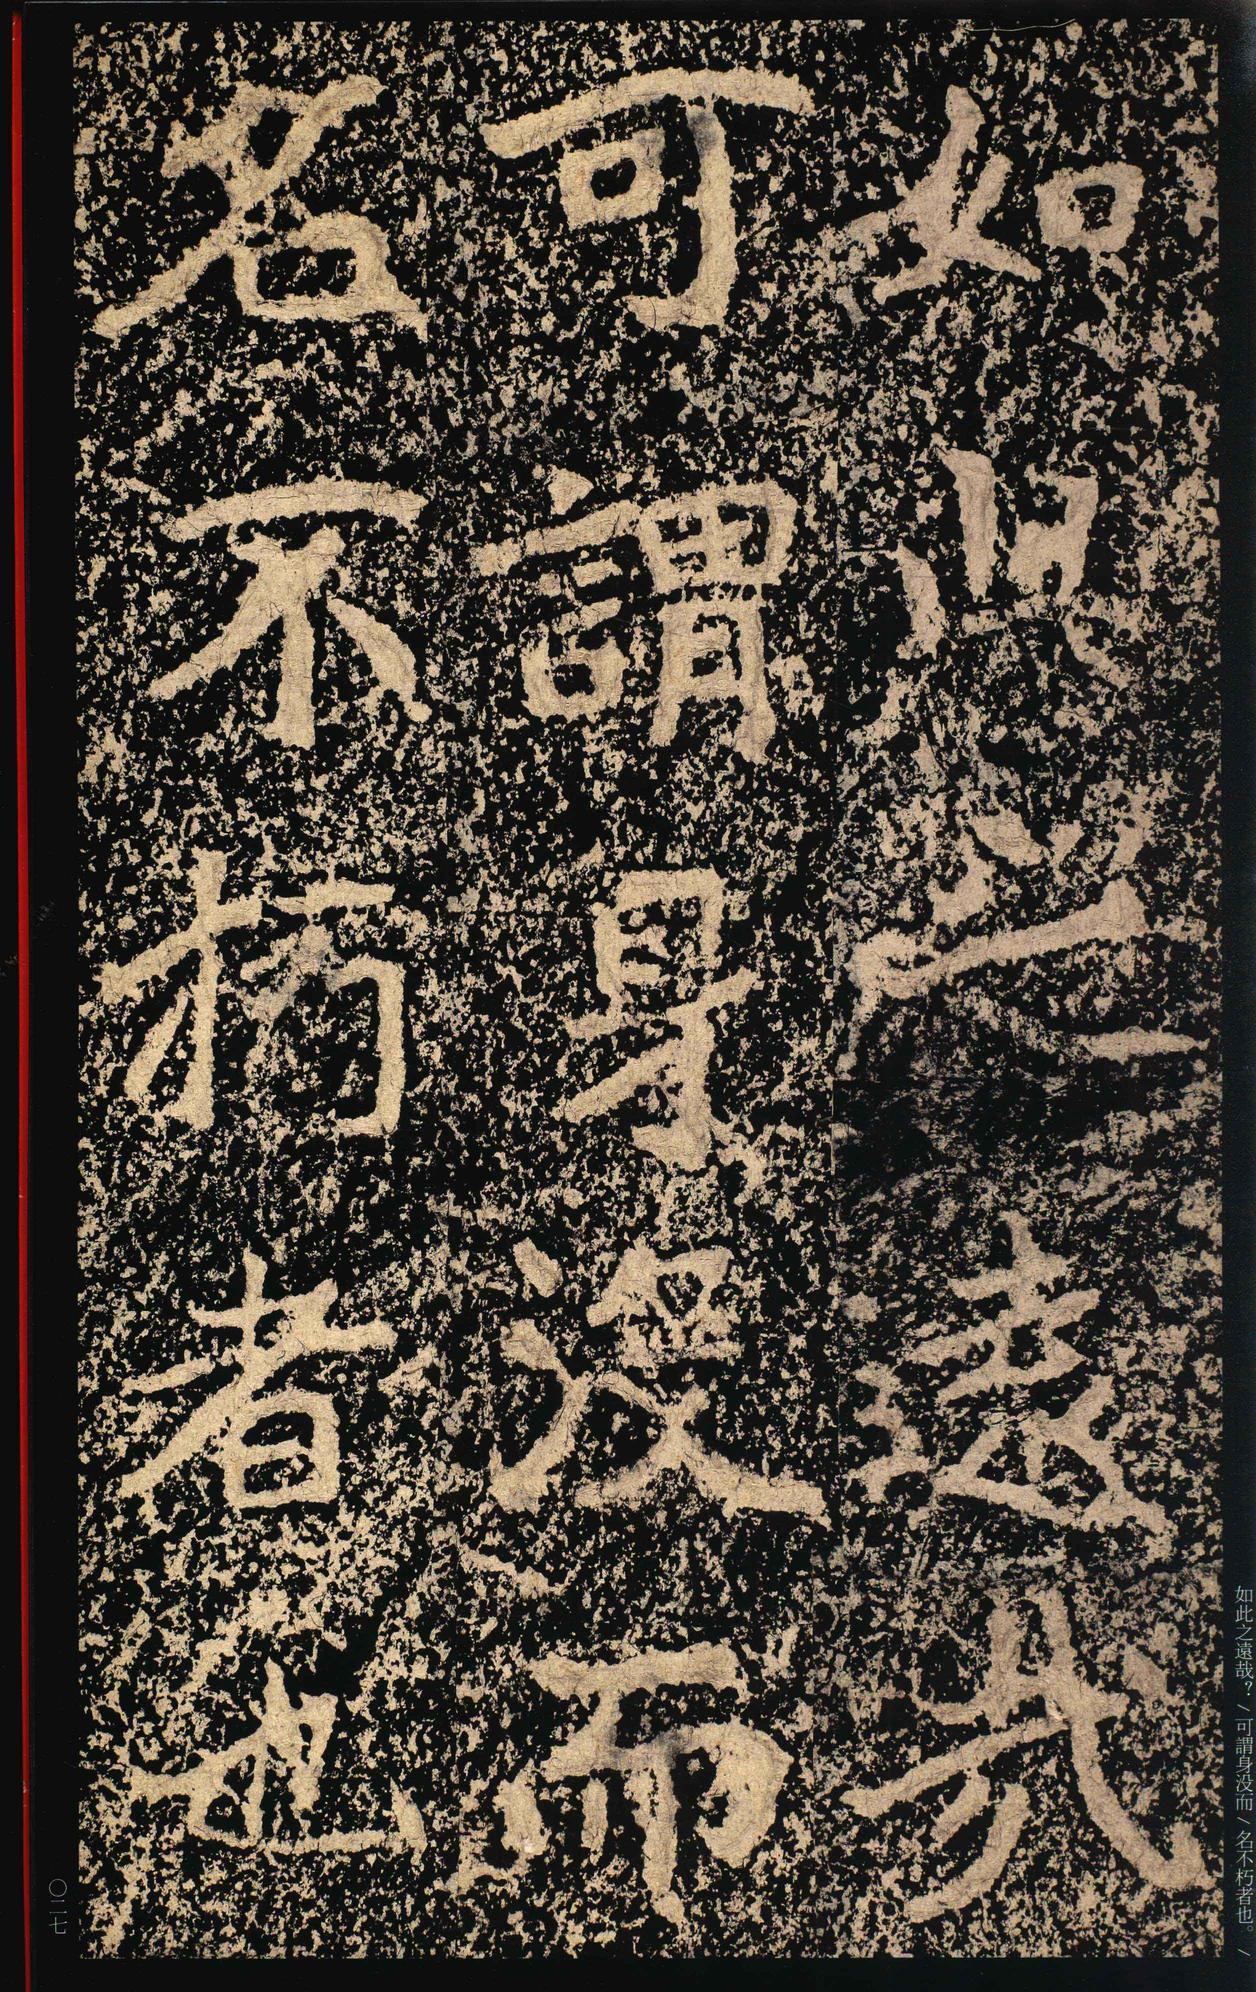 如此之遠哉
可謂身没而
名不朽者也
如此之遠哉？/可謂身没而/名不朽者也。/
〇二七